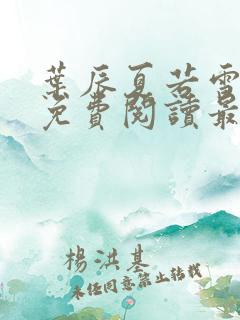 葉辰夏若雪
免費閱讀最
楊洪基
未經同意禁止轉載